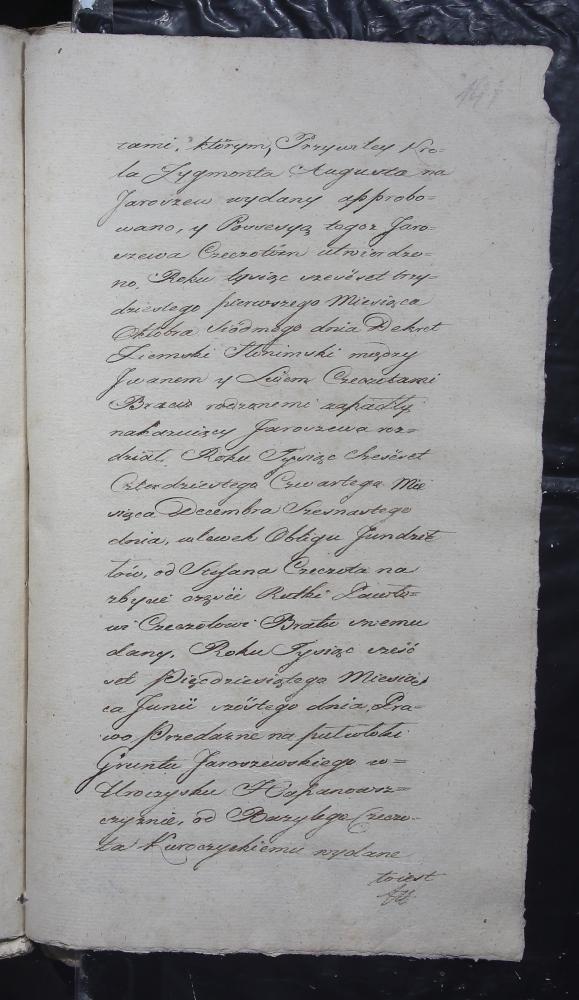 147
tami, którym, Przywiley Kro=
la Zygmonta Augusta na
Jaroszew wydany approbo=
wano, y Possesyą togoż Jaro=
szewa Czeczotóm utwierdzo=
no, Roku tysiąc szesćset trzy=
dziestego pierwszego Miesiąca
Oktobra siodmego dnia Dekret
Ziemski Słonimski między
Jwanem y Lwem Czeczotami
Bracią rodzonemi zapadły,
nakazuiący Jaroszewa roz=
dział. Roku Tysiąc Szesćset
Czterdziestego Czwartego Mie
siąca Decembra Szesnastego
dnia, wlewek Obligu Jundził
łów, od Stefana Czeczota na
zbycie części Rutki Pawło=
wi Czeczotowi Bratu swemu
dany, Roku Tysiąc sześć
set Pięcdziesiątego Miesią
ca Junii szóstego dnia, Pra=
wo Przedażne na pułwłoki
Gruntu Jaroszewskiego w=
Uroczysku Hapanowsz=
czyznie, od Bazylego Czeczo=
ta Kuroczyckiemu wydane
toiest